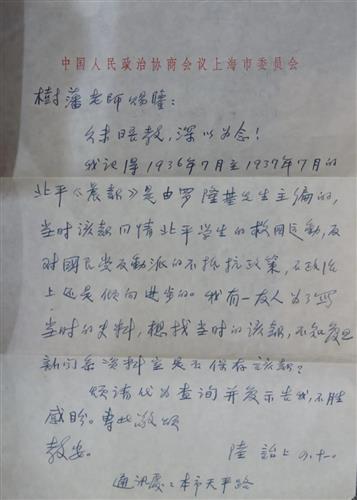 中国人民政治协商会议上海市委员会
樹藩老师赐鑒：
久未晤教，深以为念！
我记得1936年7月至1937年7月的
北平《晨報》是由罗隆基先生主编的，
当时该報同情北平学生的救国运动，反
对國民党反动派的不抵抗政策，在政治
上还是倾向进步的。我有一友人为了写
当时的史料，想找当时的该報，不知复旦
新闻系资料室是否保存该報？
烦请代为查询并及示告我，不胜
感盼。专此敬颂
教安。 陸詒上 9.十一
通讯處：本市天平路